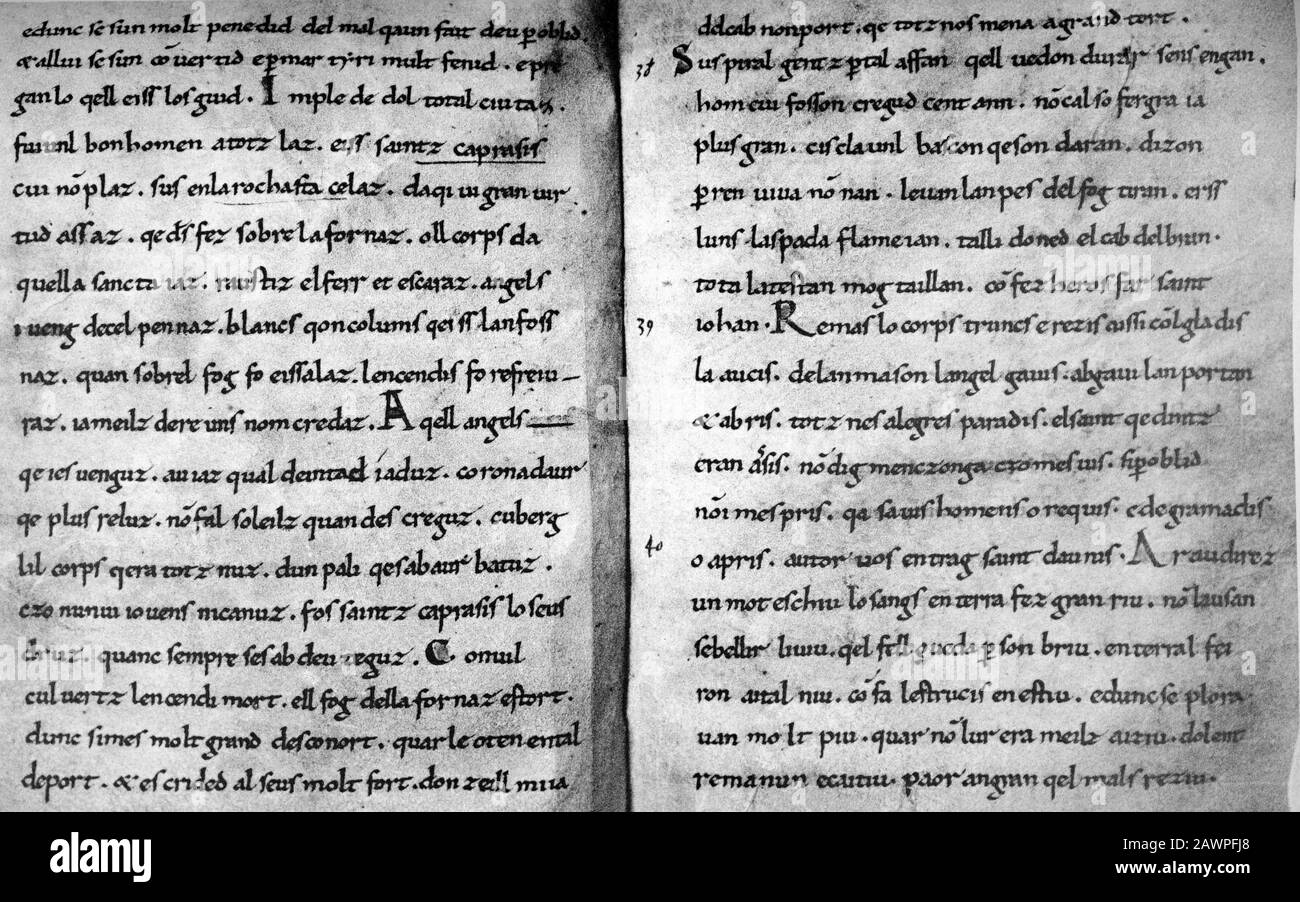 edunc se sun molt penedid del mal qaun fait deu ꝑ oblid.
& allui se sun cōuertid e ꝑ martyri mult fenid. e pre
gan lo qell eiss los guid. Imple de dol tota l ciutaz.
fui unl bon homen a totz laz. eiss saintz caprasis
cui nō plaz. sus en la rocha sta celaz. daqi ui gran uir
tud assaz. qe d̄s fez sobre la fornaz. oll corps da
quella sancta iaz. raustiz el ferr et escaraz. angels
i ueng de cel pennaz. blancs qon colums qeiss lan foss
naz. quan sobrel fog fo eissalaz. lencendis fo refreiu
raz. ia meilz dereuns nom credaz. Aqell angels
qe ies uenguz. auiaz qual deintad i aduz. corona daur
qe plus reluz. nō fal soleilz quan des creguz. cuberg
lil corps qera totz nuz. dun pali qe sab aur batuz.
czo nunui iouens ni canuz. fos saintz caprasis lo seus
druz. quanc sempre ses ab deu teguz. Co mul
culuertz lencendi mort. ell fog della fornaz estort.
dunc si mes molt grand desconort. quar le oten en tal
deport. & escrided al seus molt fort. donzell mi ua
dd cab non port. qe totz nos mena a grand tort.
38 Sus pital gent z ꝑ tal affan qell uedon durar sens engan.
hom cui fosson cregud cent ann. nō cal so fergra ia
plus gran. cisclaunl bascon qe son daran. dizon
ꝑren uiua nō nan. leuan lan pes del fog tiran. eiss
luns laspada flameian. talli doned el cab del bran.
tota la testan mog taillan. cō fez heros far saint
39 iohan. Remas lo corps truncs e rezis aissi cōl gladis
la aucis. de lanma son langel gauis. ab gaui lan portan
& ab ris. totz nes alegres paradis. el saint qe dintz
eran asis. nō dig menczonga czo mes uis. si ꝑ oblid
nō i mespris. qa sauis homens o requis. e de gramadis
40 o apris. autor uos en trag saint daunis. Ara udirez
un mot eschiu lo sangs en terra fez gran riu. nō lausan
sebellir liuiu. qel fell gueda ꝑ son briu. en terral fei
ron aital niu. cō fa lestrucis en estiu. e dunc se plora
uan molt piu. quar nō lur era meilz aiziu. dolent
remanun e caitiu. paor an gran qel mals reziu.
alamy
Image ID: 2AWPFJ8
www.alamy.com